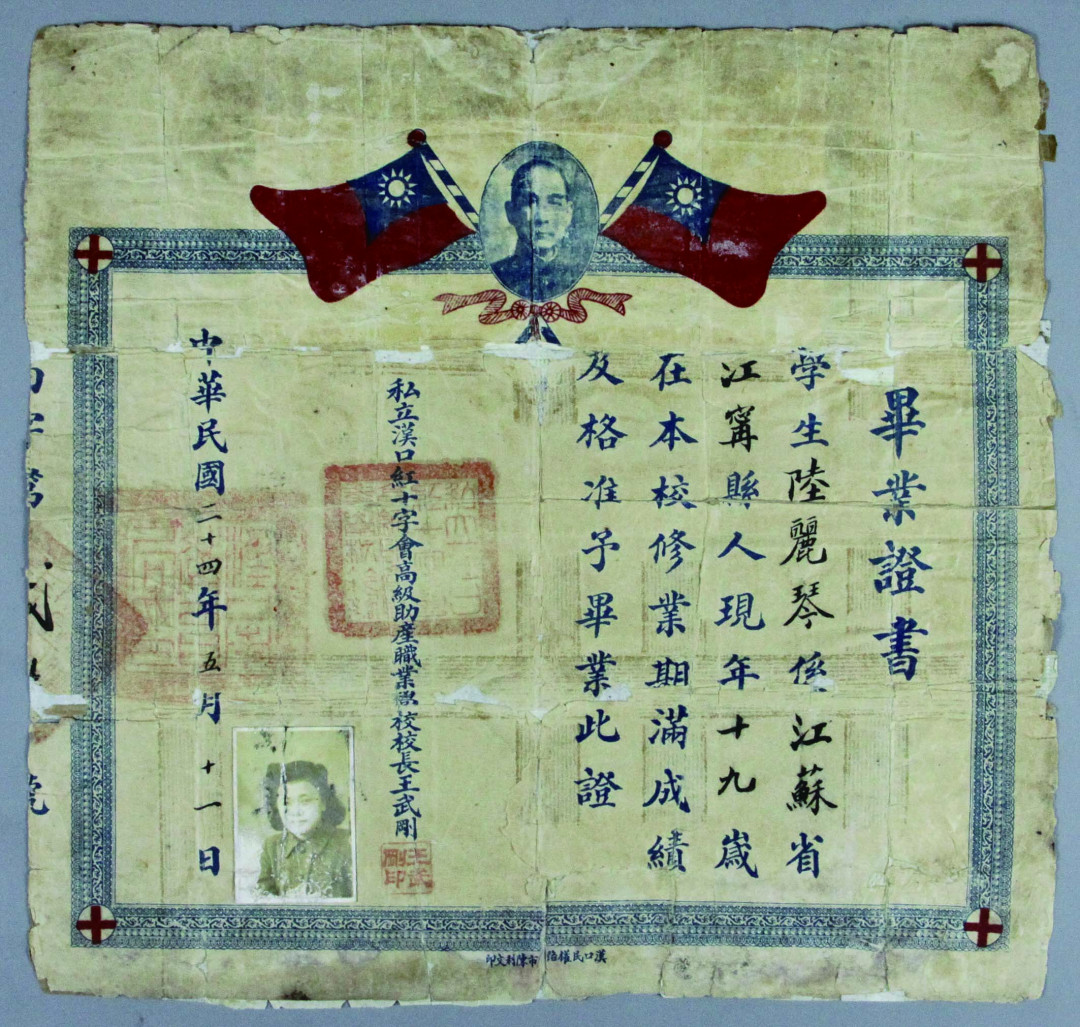 畢業證書
學生陸麗琴係江蘇省
江甯縣人現年十九歲
在本校修業期滿成績
及格准予畢業此證
私立漢口紅十字會高級助產職業學校校長王武剛
王武剛印
中華民國二十四年五月十一日
漢口民權 市陳利文印